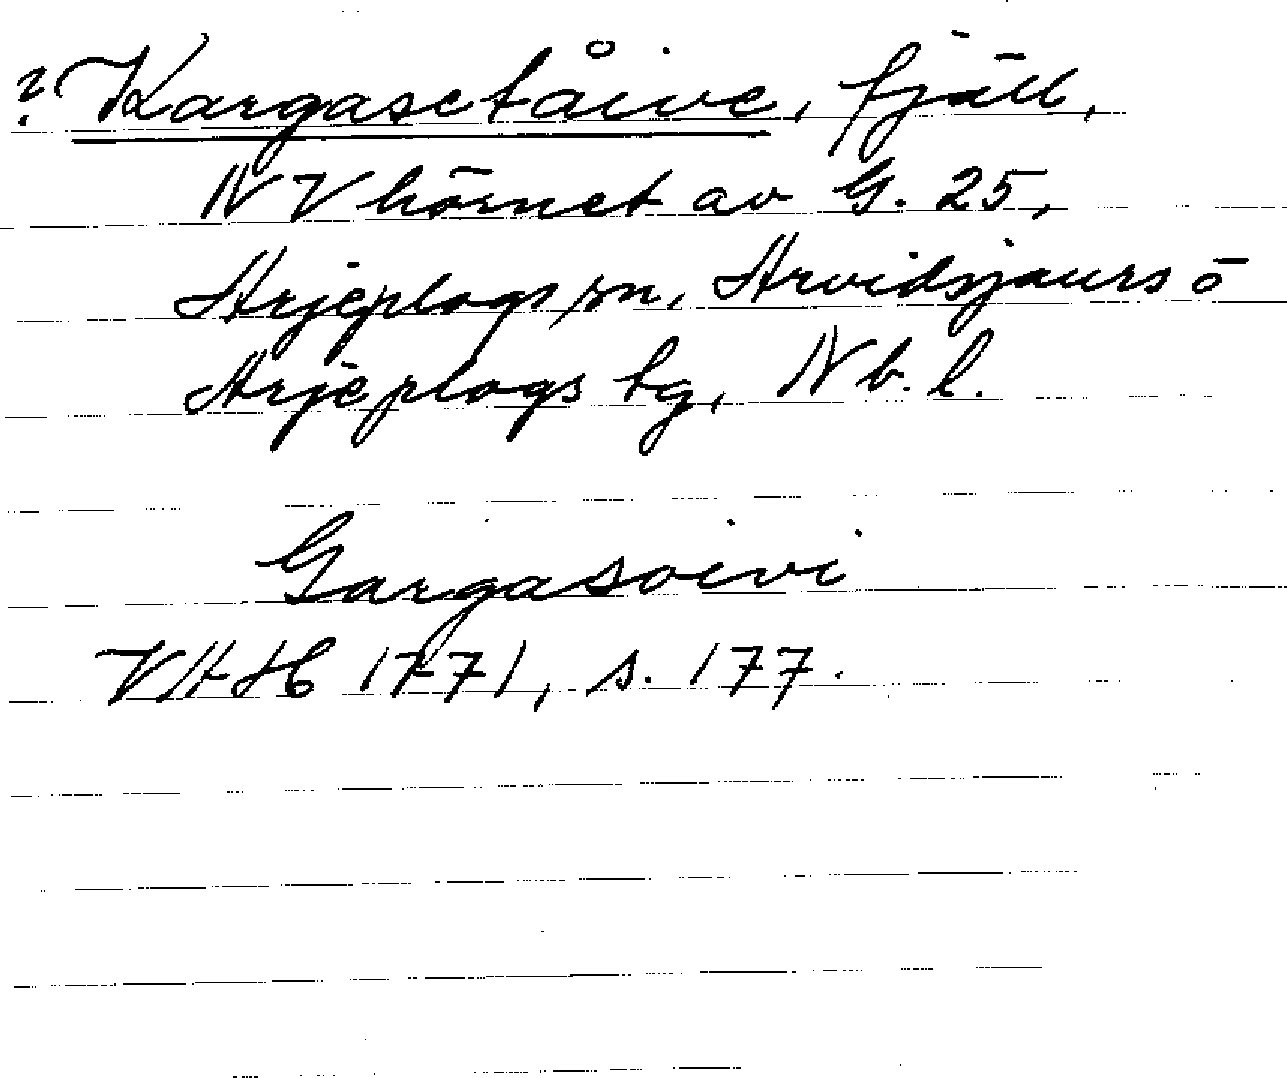 ? Kargasetåive, fjäll,
NV hörnet av G. 25,
Arjeplogs sn, Arvidsjaurs o
Arjeplogs tg, Nb. l.
Gargasoivi
VAH 1771, s. 177.